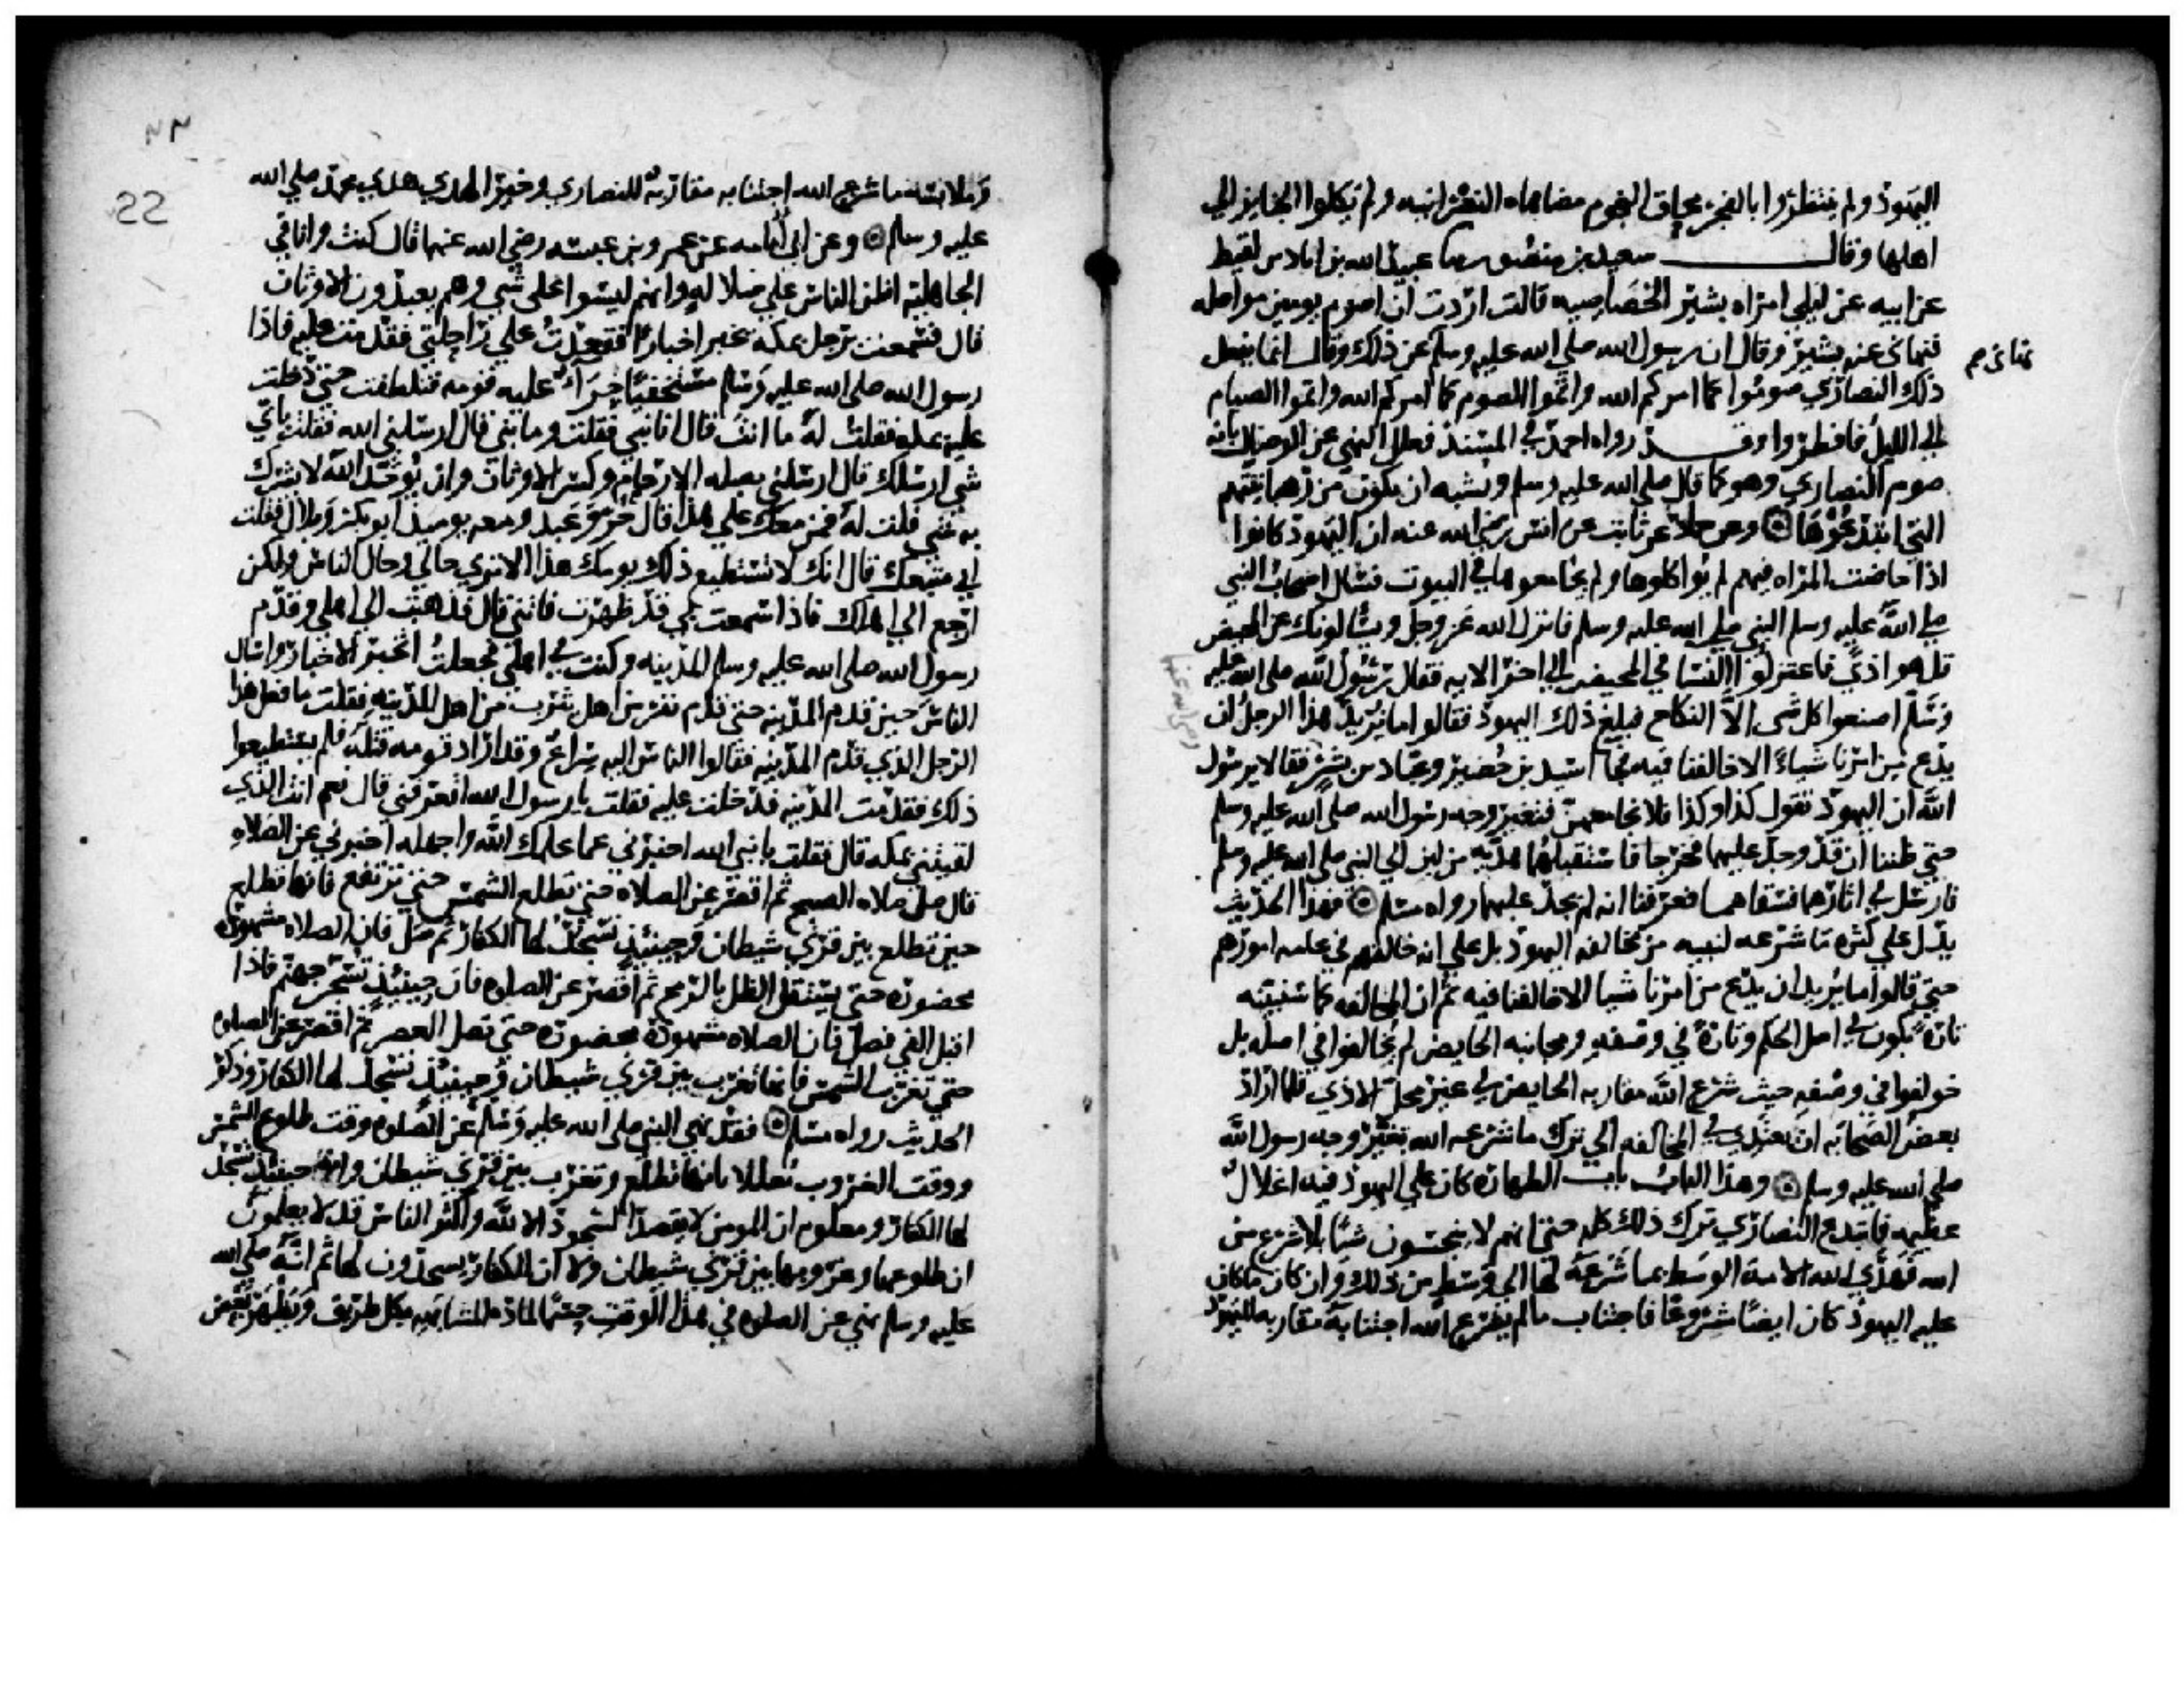 اليهود ولم ينتظروا بالفجر محاق النجوم مضاهاه النصرانيه ولم يكلوا الجنايز الي
اهلها وقال سعيد بن منصور سا عبيد الله بن اياد بن لقيط
عن ابيه عن ليلي امراه بشير الخصاصيه قالت اردت ان اصوم يومين مواصله
فنهاني عنه بشير وقال ان رسول الله صلي الله عليه وسلم عن ذلك وقال انما يفعل
نهاني م
ذلك النصاري صوموا كما امركم الله واتموا الصوم كما امركم الله واتموا الصيام
الي الليل فافطروا وقد رواه احمد في المسند فعلل النهي عن الوصال بانه
صوم النصاري وهو كما قال صلي الله عليه وسلم ويشبه ان يكون من رهبانيتهم
التي ابتدعوها وعن حماد عن ثابت عن انس رضي الله عنه ان اليهود كانوا
اذا حاضت المراه فيهم لم يواكلوها ولم يجامعوها في البيوت فسال اصحاب النبي
صلي الله عليه وسلم النبي صلي الله عليه وسلم فانزل الله عز وجل ويسالونك عن المحيض
قل هو اذي فاعتزلوا النسا في المحيض الي اخر الايه فقال رسول الله صلي الله عليه
وسلم اصنعوا كل شي الا النكاح فبلغ ذلك اليهود فقالوا ما يريد هذا الرجل ان
رضي الله عنهما
يدع من امرنا شياء الا خالفنا فيه فجا اسيد بن حضير وعباد بن بشر فقالا يرسول
الله ان اليهود تقول كذا وكذا فلا نجامعهن فتغير وجه رسول الله صلي الله عليه وسلم
حتي ظننا ان قد وجد عليهما فخرجا فاستقبلهما هديه من لبن الي النبي صلي الله عليه وسلم
فارسل في اثارهما فسقاهما فعرفنا انه لم يجد عليهما رواه مسلم فهذا الحديث
يدل علي كثره ما شرعه لنبيه من مخالفه اليهود بل علي انه خالفهم في عامه امورهم
حتي قالوا ما يريد ان يدع من امرنا شيا الا خالفنا فيه ثم ان المخالفه كما سنبينه
تارة تكون في اصل الحكم وتارة في وصفه ومجانبه الحايض لم يخالفوا في اصله بل
خولفوا في وصفه حيث شرع الله مقاربه الحايض في غير محل الاذي فلما اراد
بعض الصحابه ان يعتدي في المخالفه الي ترك ما شرعه الله تغير وجه رسول الله
صلي الله عليه وسلم وهذا الباب باب الطهاره كان علي اليهود فيه اغلال
عظيمه فابتدع النصاري ترك ذلك كله حتي انهم لا ينجسون شيا بلا شرع من
الله فهدي الله الامه الوسط بما شرعه لها الي وسط من ذلك وان كان ما كان
عليه اليهود كان ايضا مشروعا فاجتناب ما لم يشرع الله اجتنابه مقاربه لليهود
٢٢
22
وملابسه ما شرع الله اجتنابه مقاربه للنصاري وخير الهدي هدي محمد صلي الله
عليه وسلم وعن ابي امامه عن عمرو بن عبسه رضي الله عنهما قال كنت وانا في
الجاهليه اظن الناس علي ضلاله وانهم ليسوا علي شي وهم يعبدون الاوثان
قال فسمعت برجل بمكه يخبر اخبارا فقعدت علي راحلتي فقدمت عليه فاذا
رسول الله صلي الله عليه وسلم مستخفيا جراء عليه قومه فتلطفت حتي دخلت
عليه بمكه فقلت له ما انت قال انا نبي فقلت وما نبي قال ارسلني الله فقلت باي
شي ارسلك قال ارسلني بصله الارحام وكسر الاوثان وان يوحد الله لا يشرك
به شي قلت له فمن معك علي هذا قال حر وعبد ومعه يوميذ ابو بكر وبلال فقلت
اني متبعك قال انك لا تستطيع ذلك يومك هذا الا تري حالي وحال الناس ولكن
ارجع الي اهلك فاذا سمعت بي قد ظهرت فاتني قال فذهبت الي اهلي وقدم
رسول الله صلي الله عليه وسلم المدينه وكنت في اهلي فجعلت اتخبر الاخبار واسال
الناس حين قدم المدينه حتي قدم نفر من اهل يثرب من اهل المدينه فقلت ما فعل هذا
الرجل الذي قدم المدينه فقالوا الناس اليه سراع وقد اراد قومه قتله فلم يستطيعوا
ذلك فقدمت المدينه فدخلت عليه فقلت يا رسول الله اتعرفني قال نعم انت الذي
لقيتني بمكه قال فقلت يا نبي الله اخبرني عما علمك الله واجهله اخبرني عن الصلاه
قال صل صلاه الصبح ثم اقصر عن الصلاه حتي تطلع الشمس حتي ترتفع فانها تطلع
حين تطلع بين قرني شيطان وحينيذ تسجد لها الكفار ثم صل فان الصلاه مشهوده
محضوره حتي يستقل الظل بالرمح ثم اقصر عن الصلوه فان حينيذ تسجر جهنم فاذا
اقبل الفي فصل فان الصلاه مشهوده محضوره حتي تصل العصر ثم اقصر عن الصلوه
حتي تغرب الشمس فانها تغرب بين قرني شيطان وحينيذ تسجد لها الكفار وذكر
الحديث رواه مسلم فقد نهي النبي صلي الله عليه وسلم عن الصلوه وقت طلوع الشمس
ووقت الغروب معللا بانها تطلع وتغرب بين قرني شيطان وانه حينيذ تسجد
لها الكفار ومعلوم ان المومن لا يقصد السجود الا لله واكثر الناس قد لا يعلمون
ان طلوعها وغروبها بين قرني شيطان ولا ان الكفار يسجدون لها ثم انه صلي الله
عليه وسلم نهي عن الصلوه في هذا الوقت حسما لماده المشابهه بكل طريق ويظهر بعض